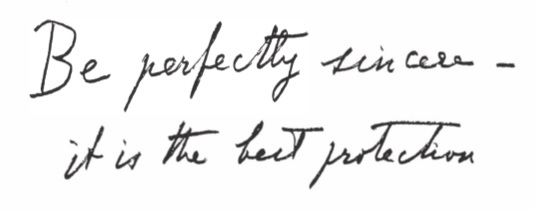 Be perfectly sincere –
it is the best protection